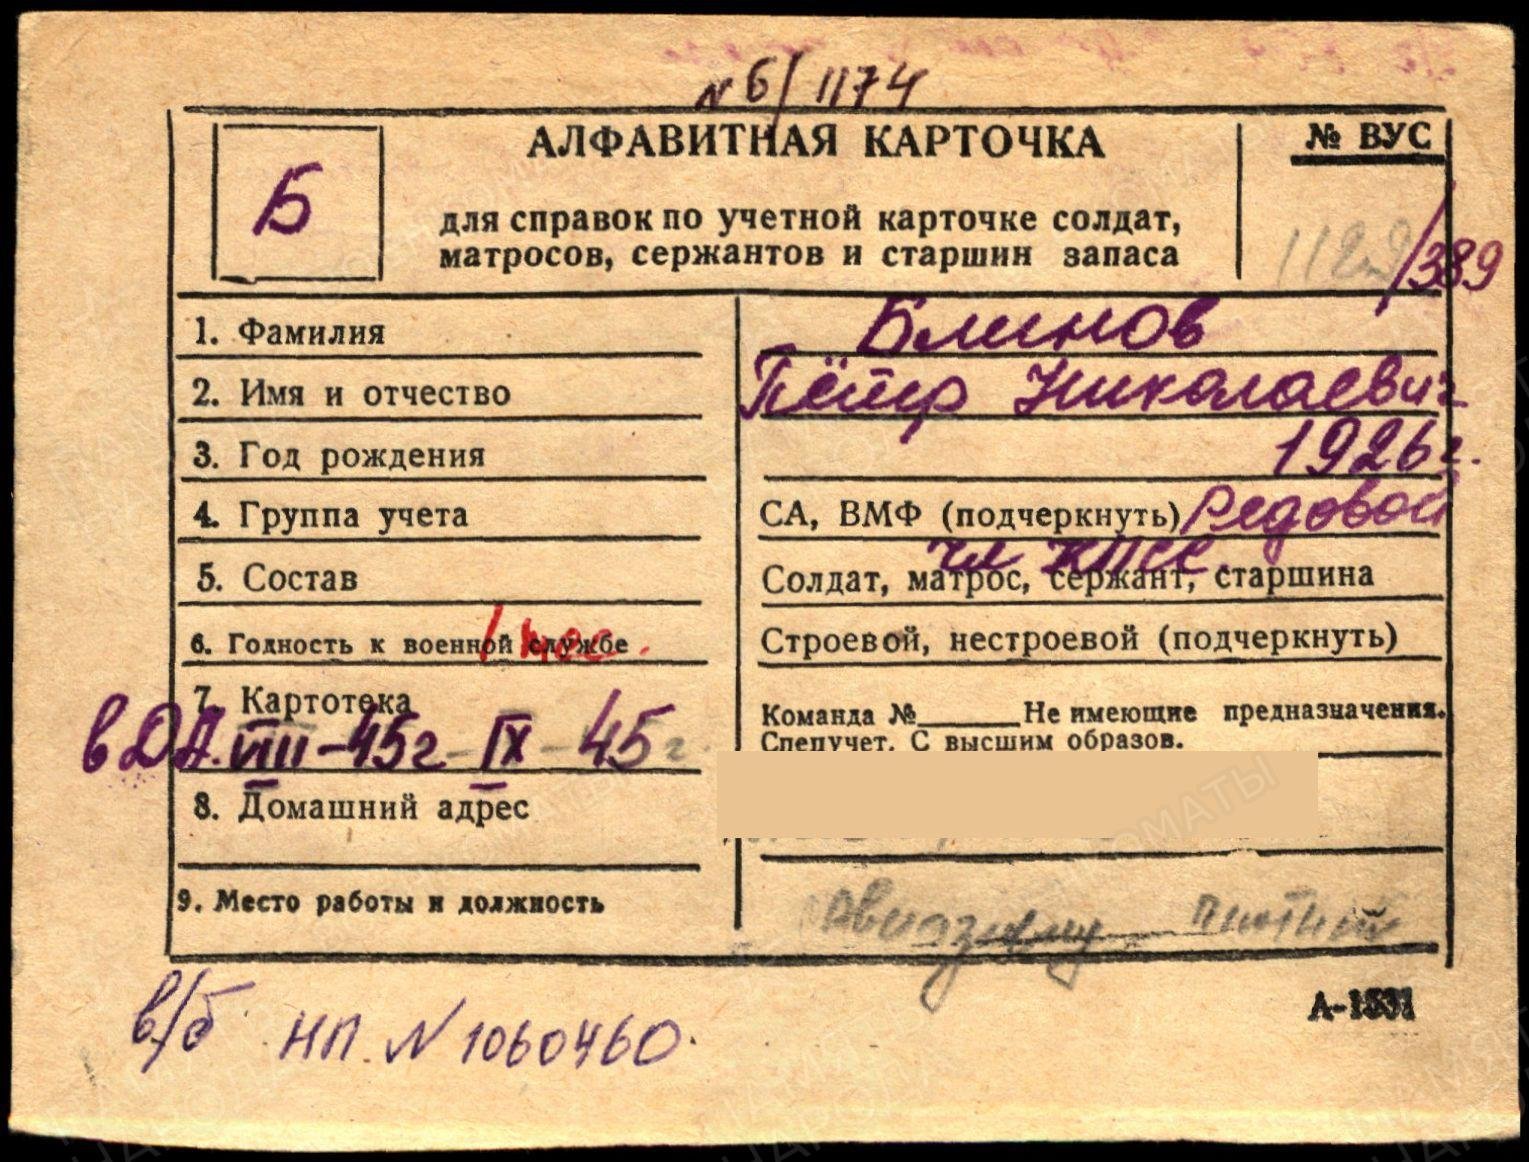 N Б/1174
АЛФАВИТНАЯ КАРТОЧКА
№ ВУС
Б
для справок по учетной карточке солдат,
матросов, сержантов и старшин запаса
/389
1. Фамилия Блинов
2. Имя и отчество Пётр Николаевич
3. Год рождения 1926г.
4. Группа учета СА, ВМФ (подчеркнуть) Редовой
чл КПСС.
5. Состав Солдат, матрос, сержант, старшина
6. Годность к военной службе Строевой, нестроевой (подчеркнуть)
7. Картотека Команда №______Не имеющие предназначения.
Спецучет. С высшим образов.
в ДА. VIII-45г-IX-45г.
8. Домашний адрес
9. Место работы и должность
А-1531
в/б НП. N 1060460.